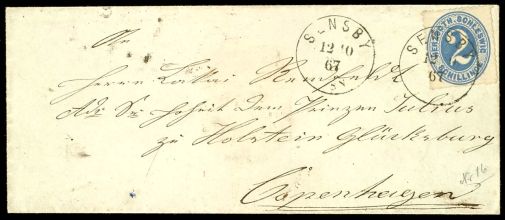 An
SENSBY
12 10
67
SENSBY
67
HERZOGTH. SCHLESWIG
2
SCHILLING
Herrn
Adr Sr Hoheit dem Prinzen Julius
zu Holstein Glücksburg
Copenhagen
No 16